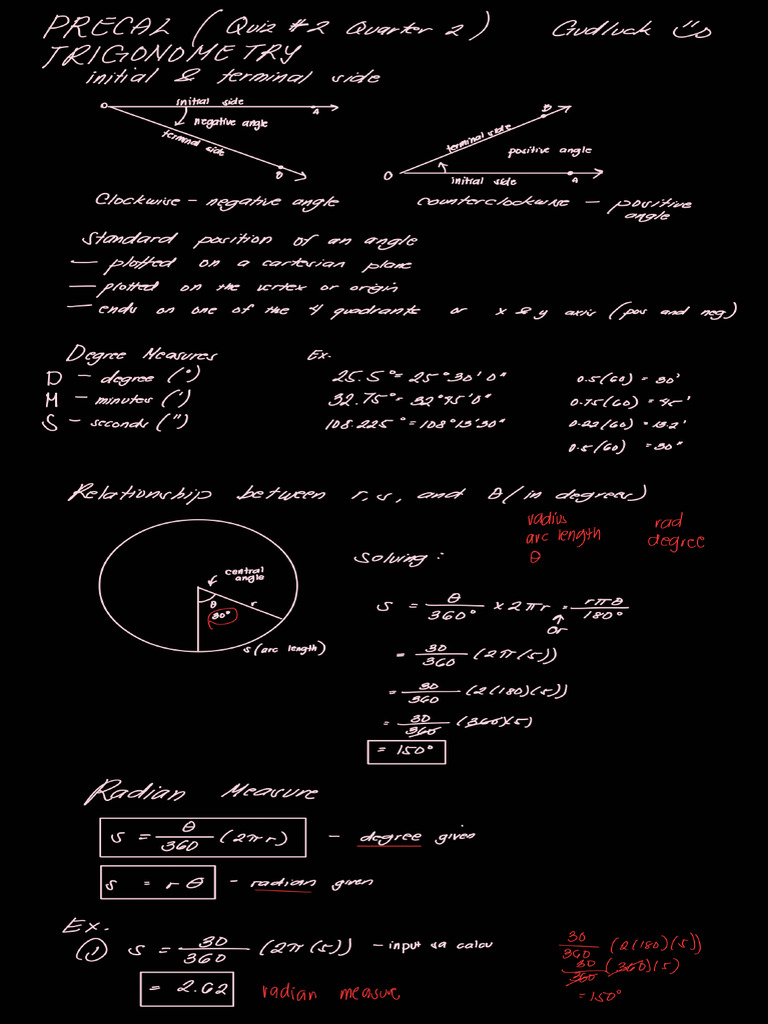 PRECAL ( Quiz #2 Quarter 2 ) Gudluck
TRIGONOMETRY
initial & terminal side
O initial side A
negative angle
terminal side
B
B
terminal side
positive angle
O initial side A
Clockwise - negative angle
counterclockwise - positive angle
Standard position of an angle
- plotted on a cartesian plane
- plotted on the vertex or origin
- ends on one of the 4 quadrants or x & y axis (pos and neg)
Degree Measures Ex.
D - degree (°) 25.5° = 25°30'0" 0.5(60) = 30'
M - minutes (') 32.75° = 32°45'0" 0.75(60) = 45'
S - seconds (") 108.225° = 108°13'30" 0.22(60) = 13.2'
0.5(60) = 30"
Relationship between r, s, and θ (in degrees)
radius rad
arc length degree
θ
central angle
θ r
30°
s (arc length)
Solving :
s = θ/360° x 2πr = rπθ/180°
or
= 30/360 (2π(5))
= 30/360 (2(180)(5))
= 30/360 (360)(5)
= 150°
Radian Measure
s = θ/360 (2πr) - degree given
s = rθ - radian given
Ex.
① s = 30/360 (2π(5)) - input sa calcu
= 2.62 radian measure
30/360 (2(180)(5))
30/360 (360)(5)
= 150°